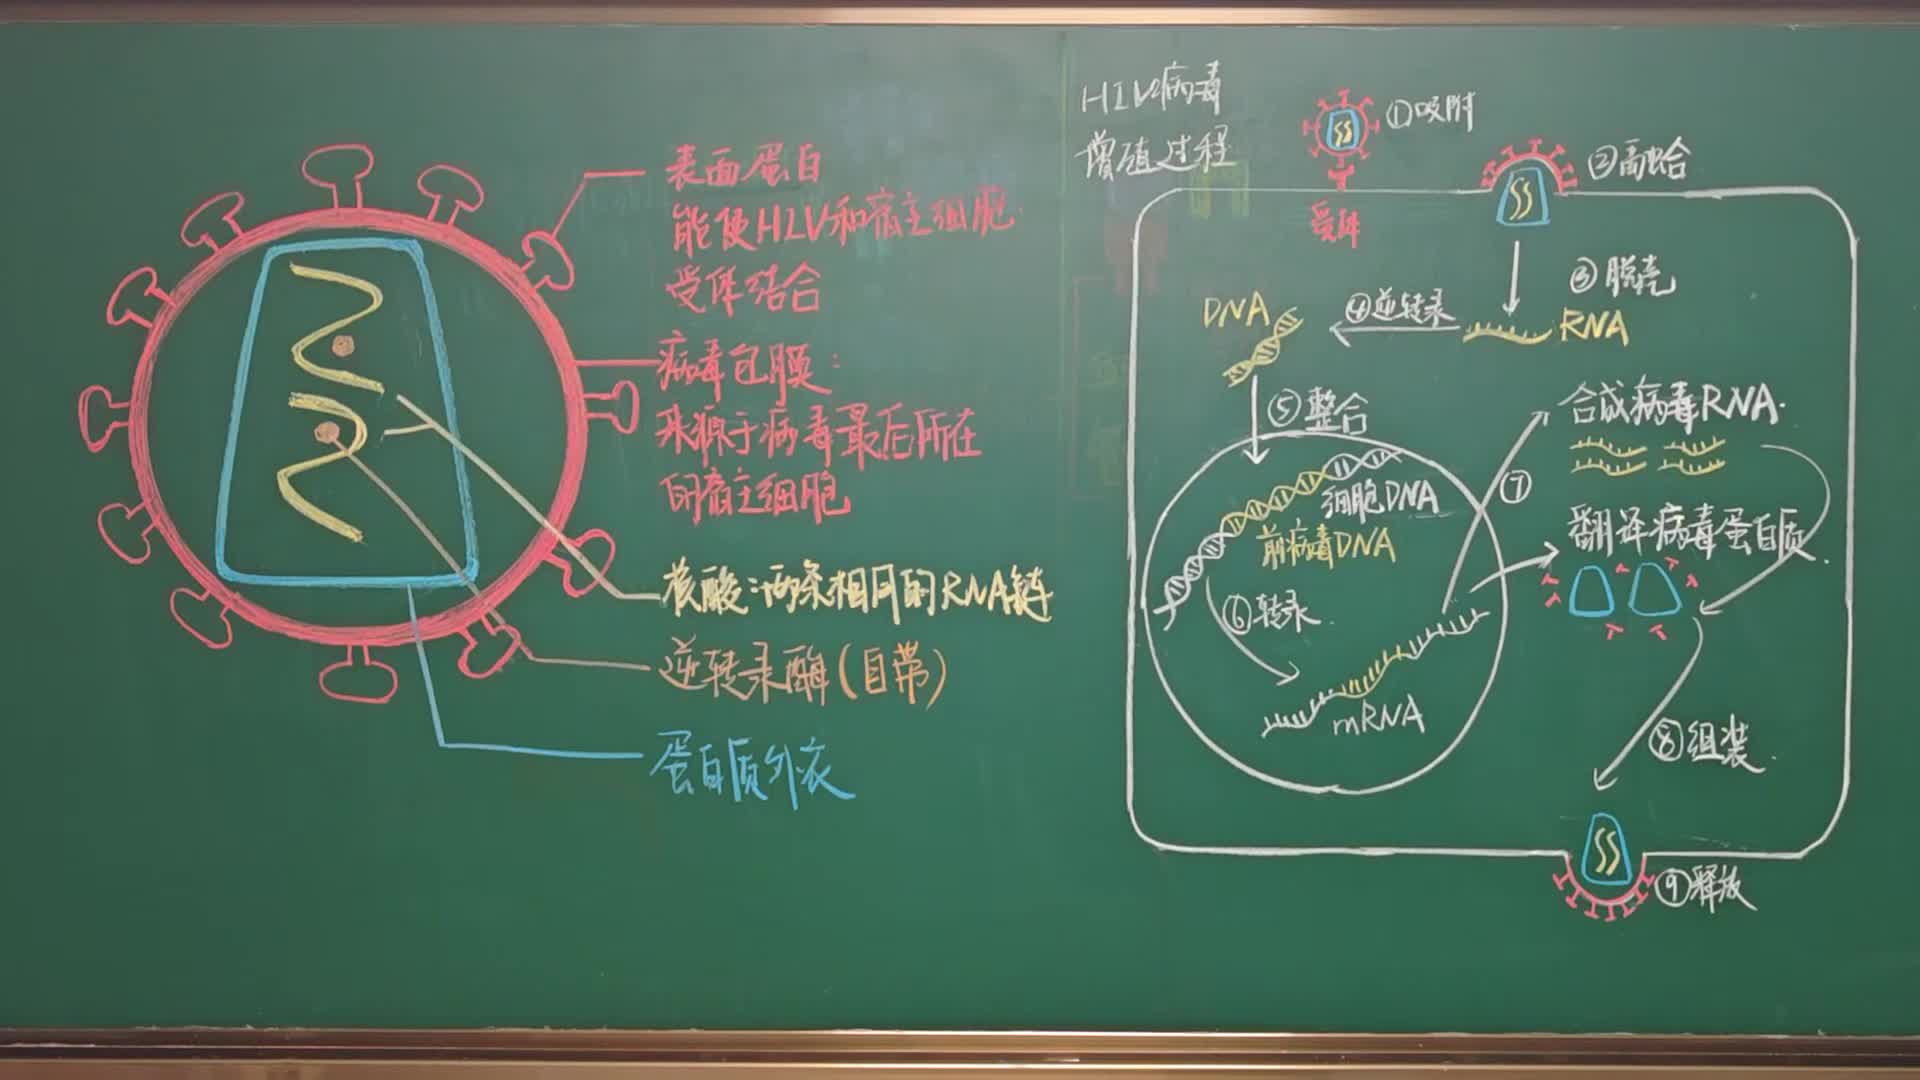 表面蛋白
能使HIV和宿主细胞
受体结合
病毒包膜：
来源于病毒最后所在
的宿主细胞
核酸：两条相同的RNA链
逆转录酶（自带）
蛋白质外衣
HIV病毒
增殖过程
①吸附
受体
②融合
③脱壳
RNA
④逆转录
DNA
⑤整合
细胞DNA
前病毒DNA
⑥转录
mRNA
⑦
合成病毒RNA
翻译病毒蛋白质
⑧组装
⑨释放